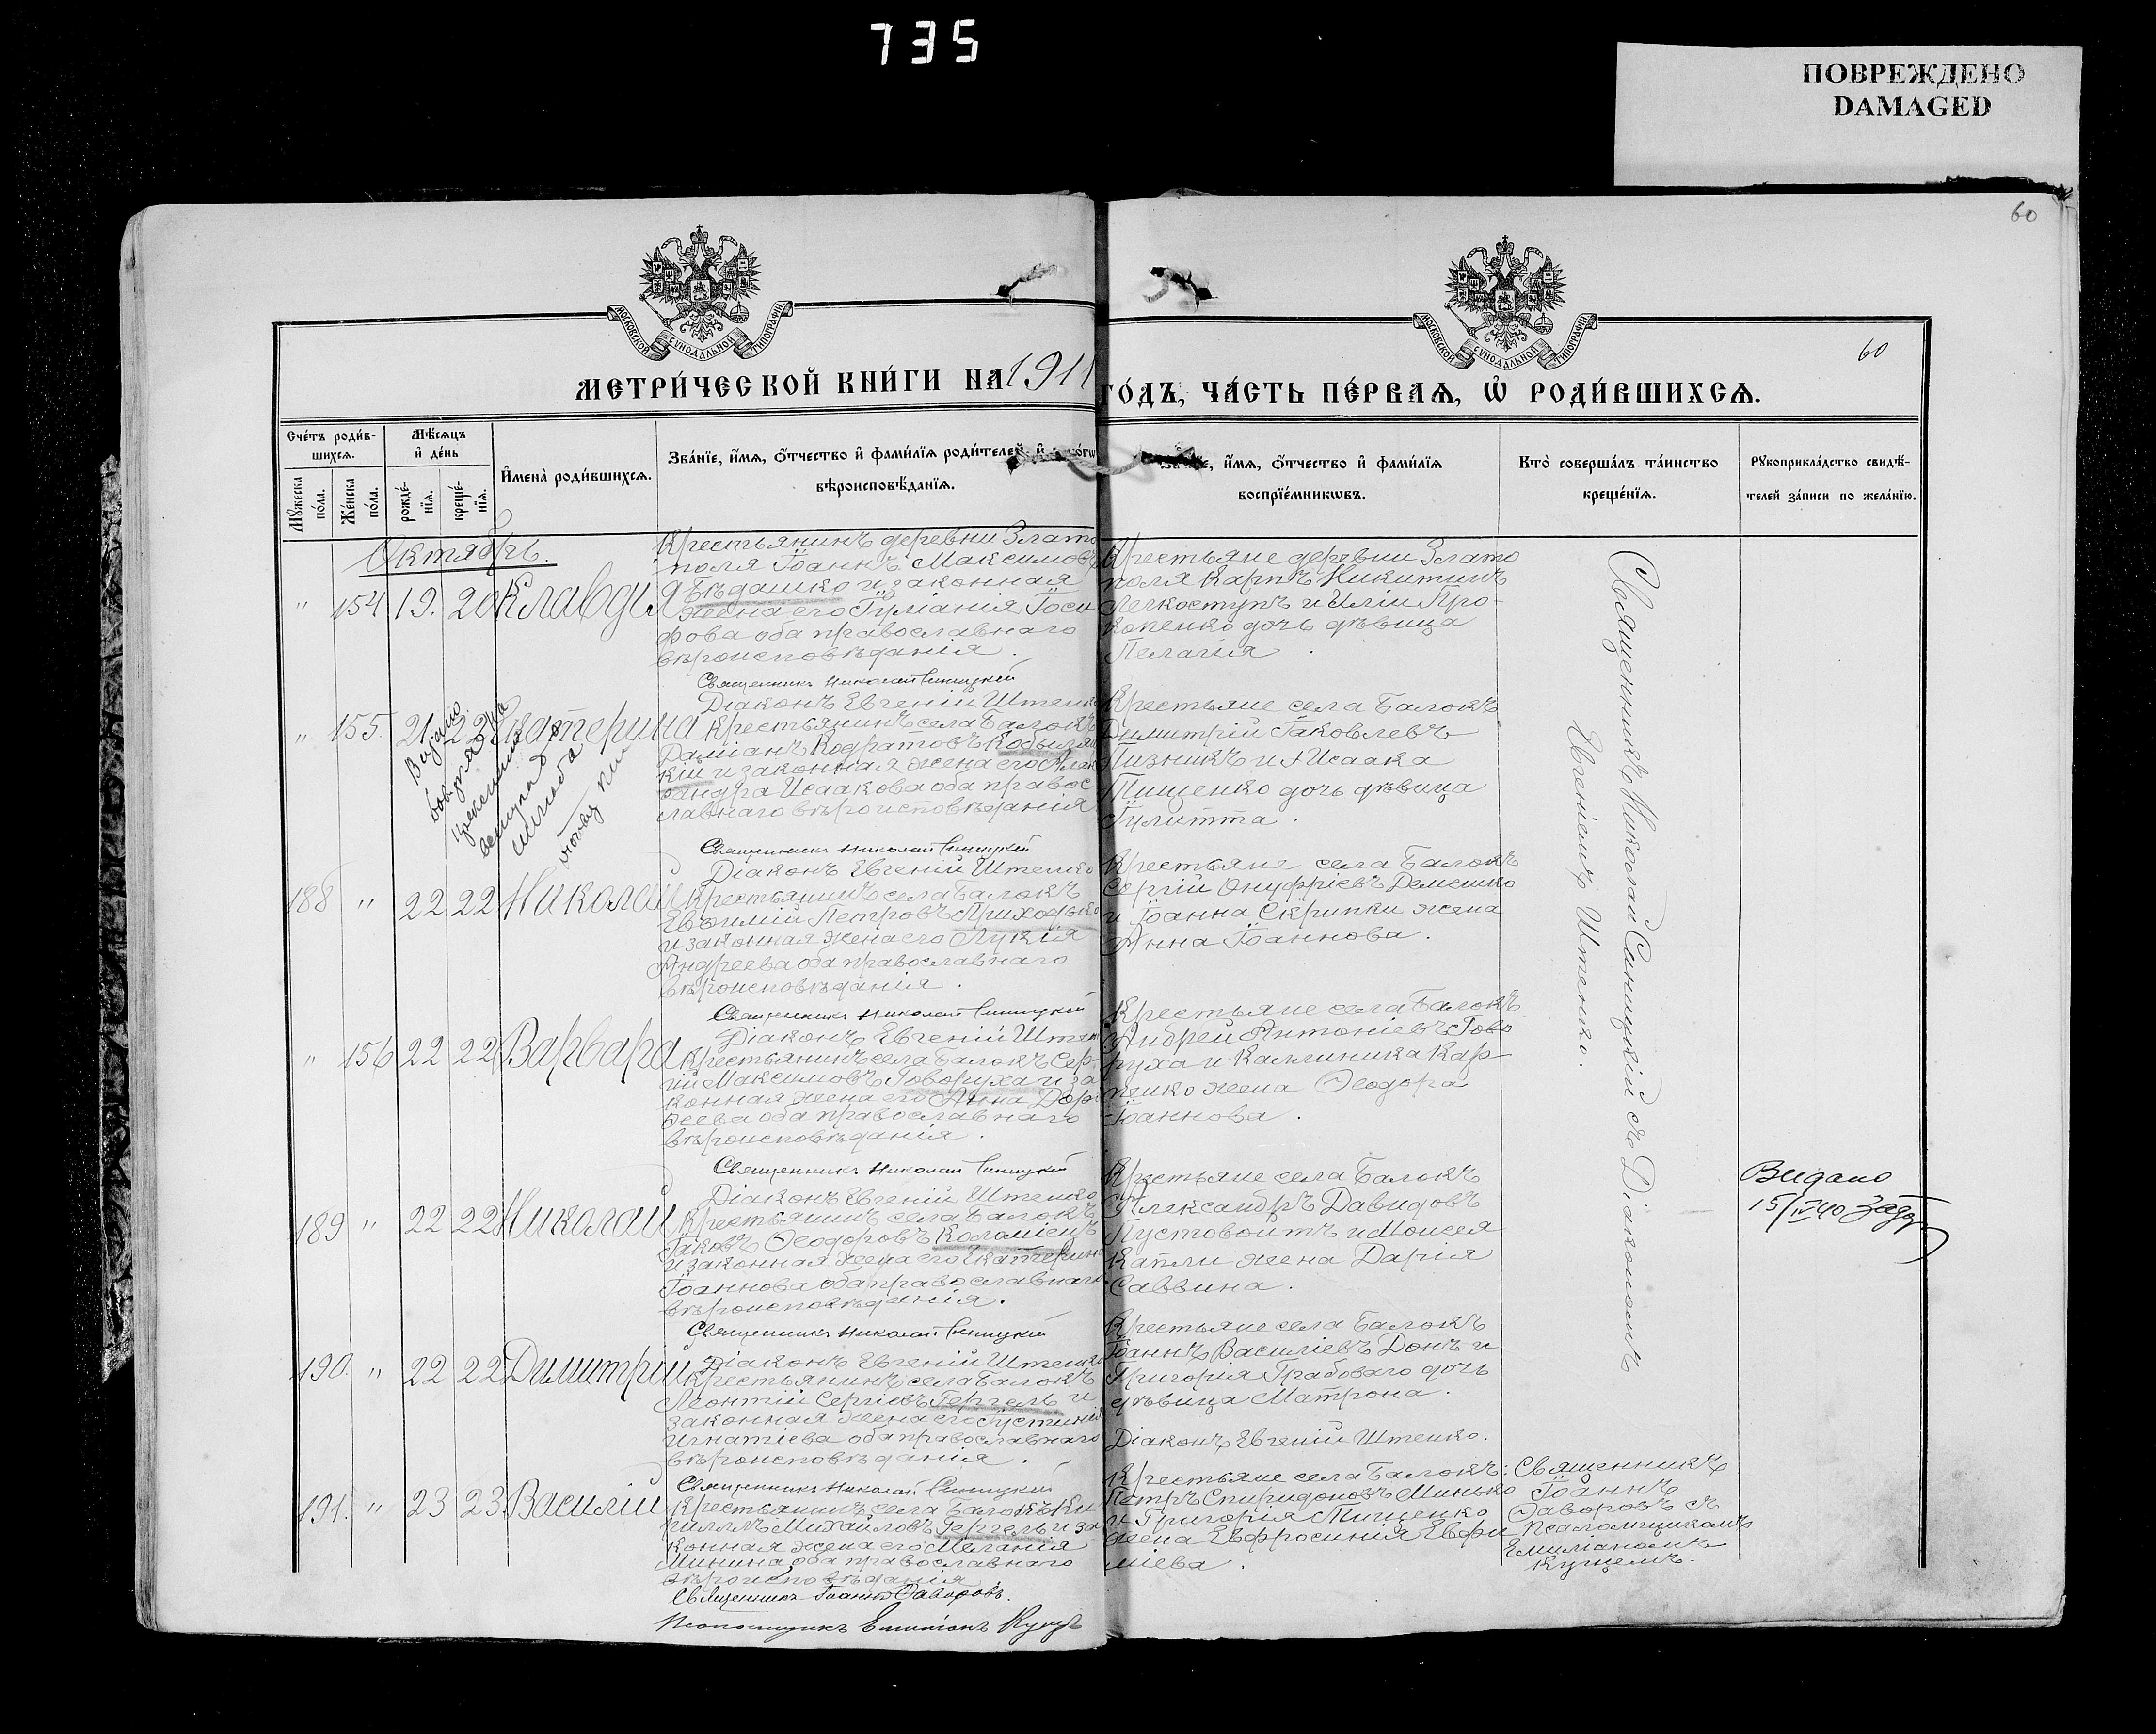 735
ПОВРЕЖДЕНО
DAMAGED
60
60
МОСКОВСКОЙ СѴНОДАЛЬНОЙ ТИПОГРАФІИ
МОСКОВСКОЙ СѴНОДАЛЬНОЙ ТИПОГРАФІИ
МЕТРИ́ЧЕСКОЙ КНИ́ГИ НА 1911
ГО́ДЪ, ЧА́СТЬ ПЕ́РВАѦ, Ѡ҆ РОДИ́ВШИХСѦ.
Сче́тъ роди́в-
шихсѧ.
Мꙋ́жеска
по́ла.
Же́нска
по́ла.
Мѣ́сѧцъ
и҆ де́нь
рожде́-
нїѧ.
креще́-
нїѧ.
И҆мена̀ роди́вшихсѧ.
Зва́нїе, и҆́мѧ, ѻ҆́тчество и҆ фами́лїѧ роди́телей, и҆
вѣроисповѣ́данїѧ.
и҆́мѧ, ѻ҆́тчество и҆ фами́лїѧ
воспрїе́мникѡвъ.
Кто̀ соверша́лъ та́инство
креще́нїѧ.
Рꙋкоприкла́дство свидѣ́-
телей за́писи по жела́нїю.
Октябрь.
" 154 19. 20 Клавдия
Крестьянинъ деревни Злато
поля Іоаннъ Максимовъ
Бѣдашко и законная
жена его Іуліанія Іоси
фова оба православнаго
вѣроисповѣданія.
Священникъ Николай Синицкій
Діаконъ Евгеній Штепко
Крестьяне деревни Злато
поля Карпъ Никитинъ
Легкоступъ и Иліи Про-
копенко дочь дѣвица
Пелагія.
" 155. 21. 22 Екатерина
Видано
Крестьянинъ села Балокъ
Даміанъ Кодратовъ Кобыляц
кій и законная жена его Алек
сандра Исаакова оба правос
лавнаго вѣроисповѣданія
Священникъ Николай Синицкій
Діаконъ Евгеній Штепко
Крестьяне села Балокъ
Димитрій Іаковлевъ
Пизникъ и Исаака
Тищенко дочь дѣвица
Іулитта.
188 " 22 22 Николай
Крестьянинъ села Балокъ
Евѳимій Петровъ Приходько
и законная жена его Лукія
Андреева оба православнаго
вѣроисповѣданія.
Священникъ Николай Синицкій
Діаконъ Евгеній Штепко
Крестьяне села Балокъ
Сергій Онуфріевъ Демешко
и Іоанна Скрипки жена
Анна Іоаннова.
" 156 22 22 Варвара
Крестьянинъ села Балокъ Сер-
гій Максимовъ Говоруха и за
конная жена его Анна Доро
ѳеева оба православнаго
вѣроисповѣданія.
Священникъ Николай Синицкій
Діаконъ Евгеній Штепко
Крестьяне села Балокъ
Андрей Антоніевъ Гово
руха и Каллиника Кар-
пенко жена Ѳеодора
Іоаннова.
189 " 22 22 Николай
Крестьянинъ села Балокъ
Іаковъ Ѳеодоровъ Коломіецъ
и законная жена его Екатерина
Іоаннова оба православнаго
вѣроисповѣданія.
Священникъ Николай Синицкій
Діаконъ Евгеній Штепко
Крестьяне села Балокъ
Александръ Давидовъ
Пустовойтъ и Моисея
Капли жена Дарія
Саввина.
Видано
15/IV 40
190. " 22 22 Димитрій
Крестьянинъ села Балокъ
Леонтій Сергіевъ Гергель и
законная жена его Іустинія
Игнатіева оба православнаго
вѣроисповѣданія.
Священникъ Николай Синицкій
Крестьяне села Балокъ
Іоаннъ Василіевъ Донъ и
Григорія Грабоваго дочь
дѣвица Матрона.
Діаконъ Евгеній Штепко.
Священникъ Николай Синицкій съ Діакономъ
Евгеніемъ Штепко.
191. " 23 23 Василій
Крестьянинъ села Балокъ Ки
риллъ Михайловъ Гергель и за
конная жена его Меланія
Минина оба православнаго
вѣроисповѣданія
Священникъ Іоаннъ Ѳаворовъ.
Псаломщикъ Емиліанъ Кущъ
Крестьяне села Балокъ:
Петръ Спиридоновъ Минько
и Григорія Тищенко
жена Евфросинія Евфи
міева.
Священникъ
Іоаннъ
Ѳаворовъ съ
Псаломщикомъ
Емиліаномъ
Кущемъ.